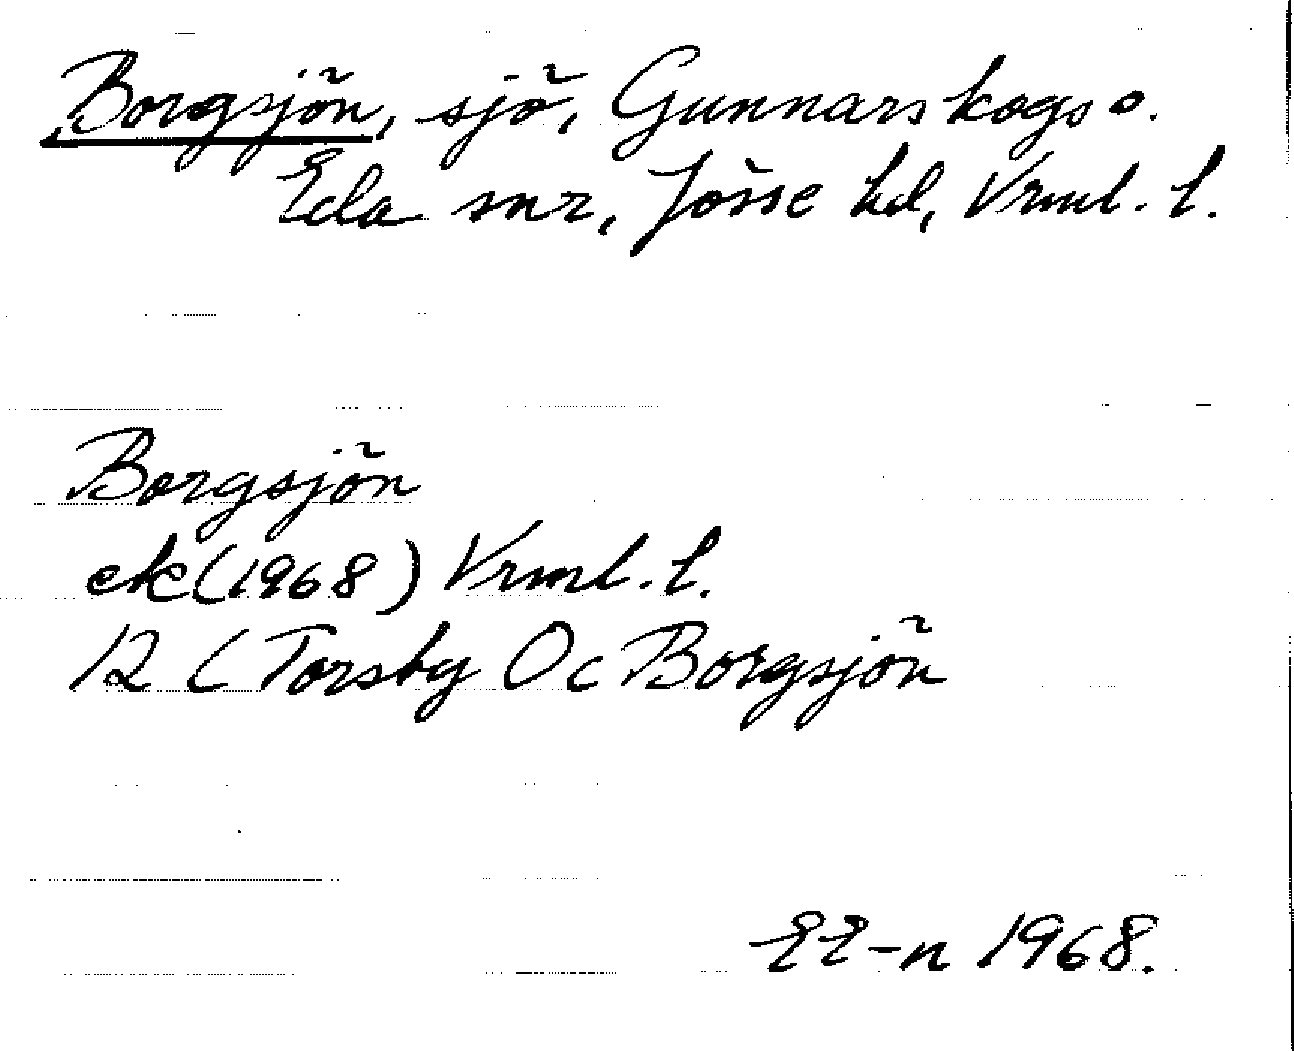 Borgsjön, sjö, Gunnarskogs o.
Eda snr, Jösse hd, Vrml. l.
Borgsjön
ek (1968) Vrml. l.
12 C Torsby Oc Borgsjön
EE-n 1968.